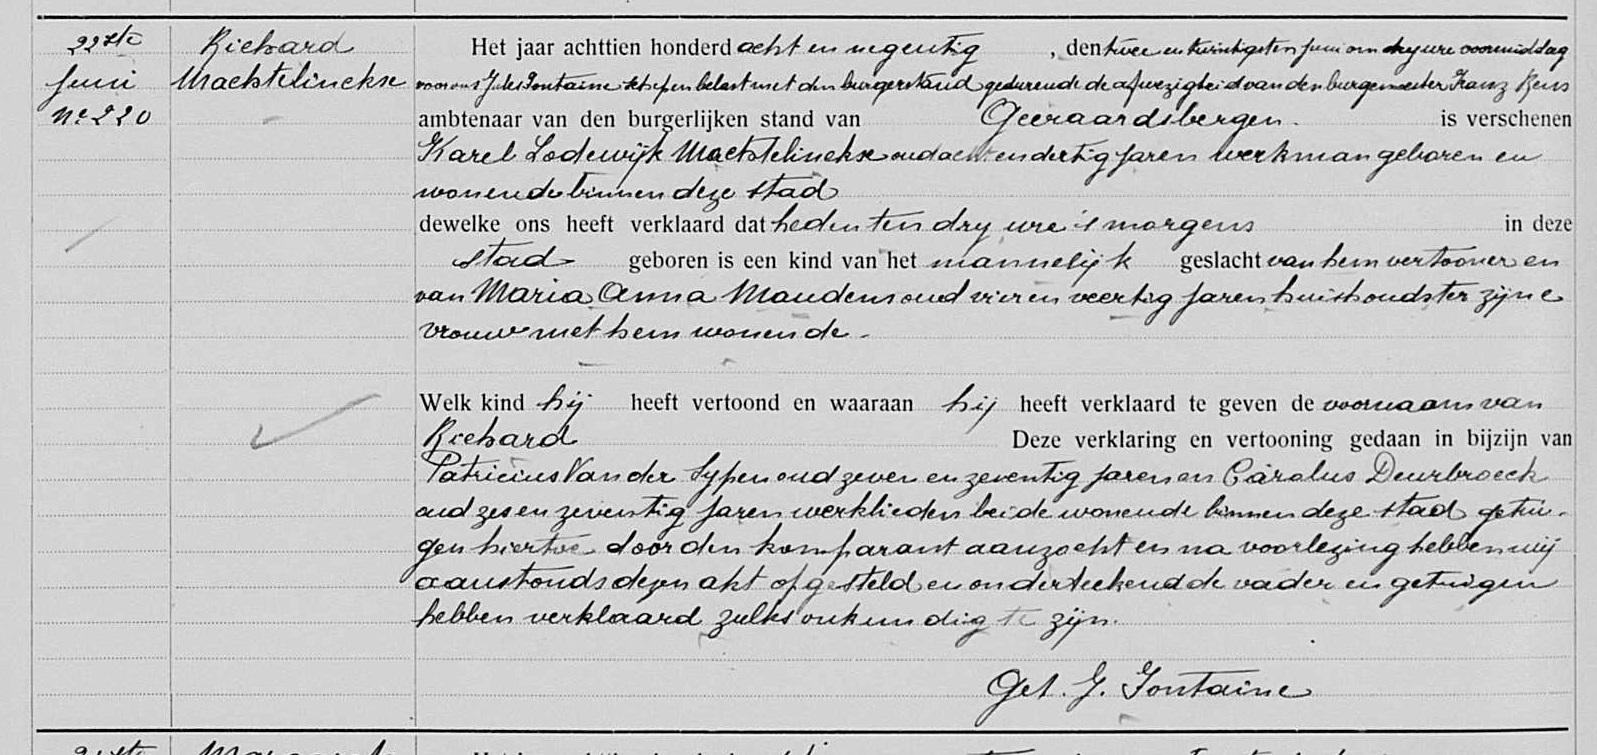 22ste
Juni
No 220
Richard
Machtelinckse
Het jaar achttien honderd acht en negentig, den twee en twintigsten juni om dry ure voormiddag
voor ons Jules Fontaine schepen belast met den burgerstand gedurende de afwezigheid van den burgemeester Franz Rens
ambtenaar van den burgerlijken stand van Geeraardsbergen. is verschenen
Karel Lodewijk Machtelinckse oud acht en dertig jaren werkman geboren en
wonende binnen deze stad
dewelke ons heeft verklaard dat heden ten dry ure 's morgens in deze
stad geboren is een kind van het mannelijk geslacht van hem vertooner en
van Maria Anna Maudens oud vier en veertig jaren huishoudster zijne
vrouw met hem wonende.
Welk kind hij heeft vertoond en waaraan hij heeft verklaard te geven de voornaam van
Richard Deze verklaring en vertooning gedaan in bijzijn van
Patricius Van der Sypen oud zeven en zeventig jaren en Carolus Deurbroeck
oud zes en zeventig jaren werklieden beide wonende binnen deze stad getui-
gen hiertoe door den komparant aanzocht en na voorlezing hebben wij
aanstonds dezen akt opgesteld en onderteekend de vader en getuigen
hebben verklaard zulks onkundig te zijn.
Get. J. Fontaine